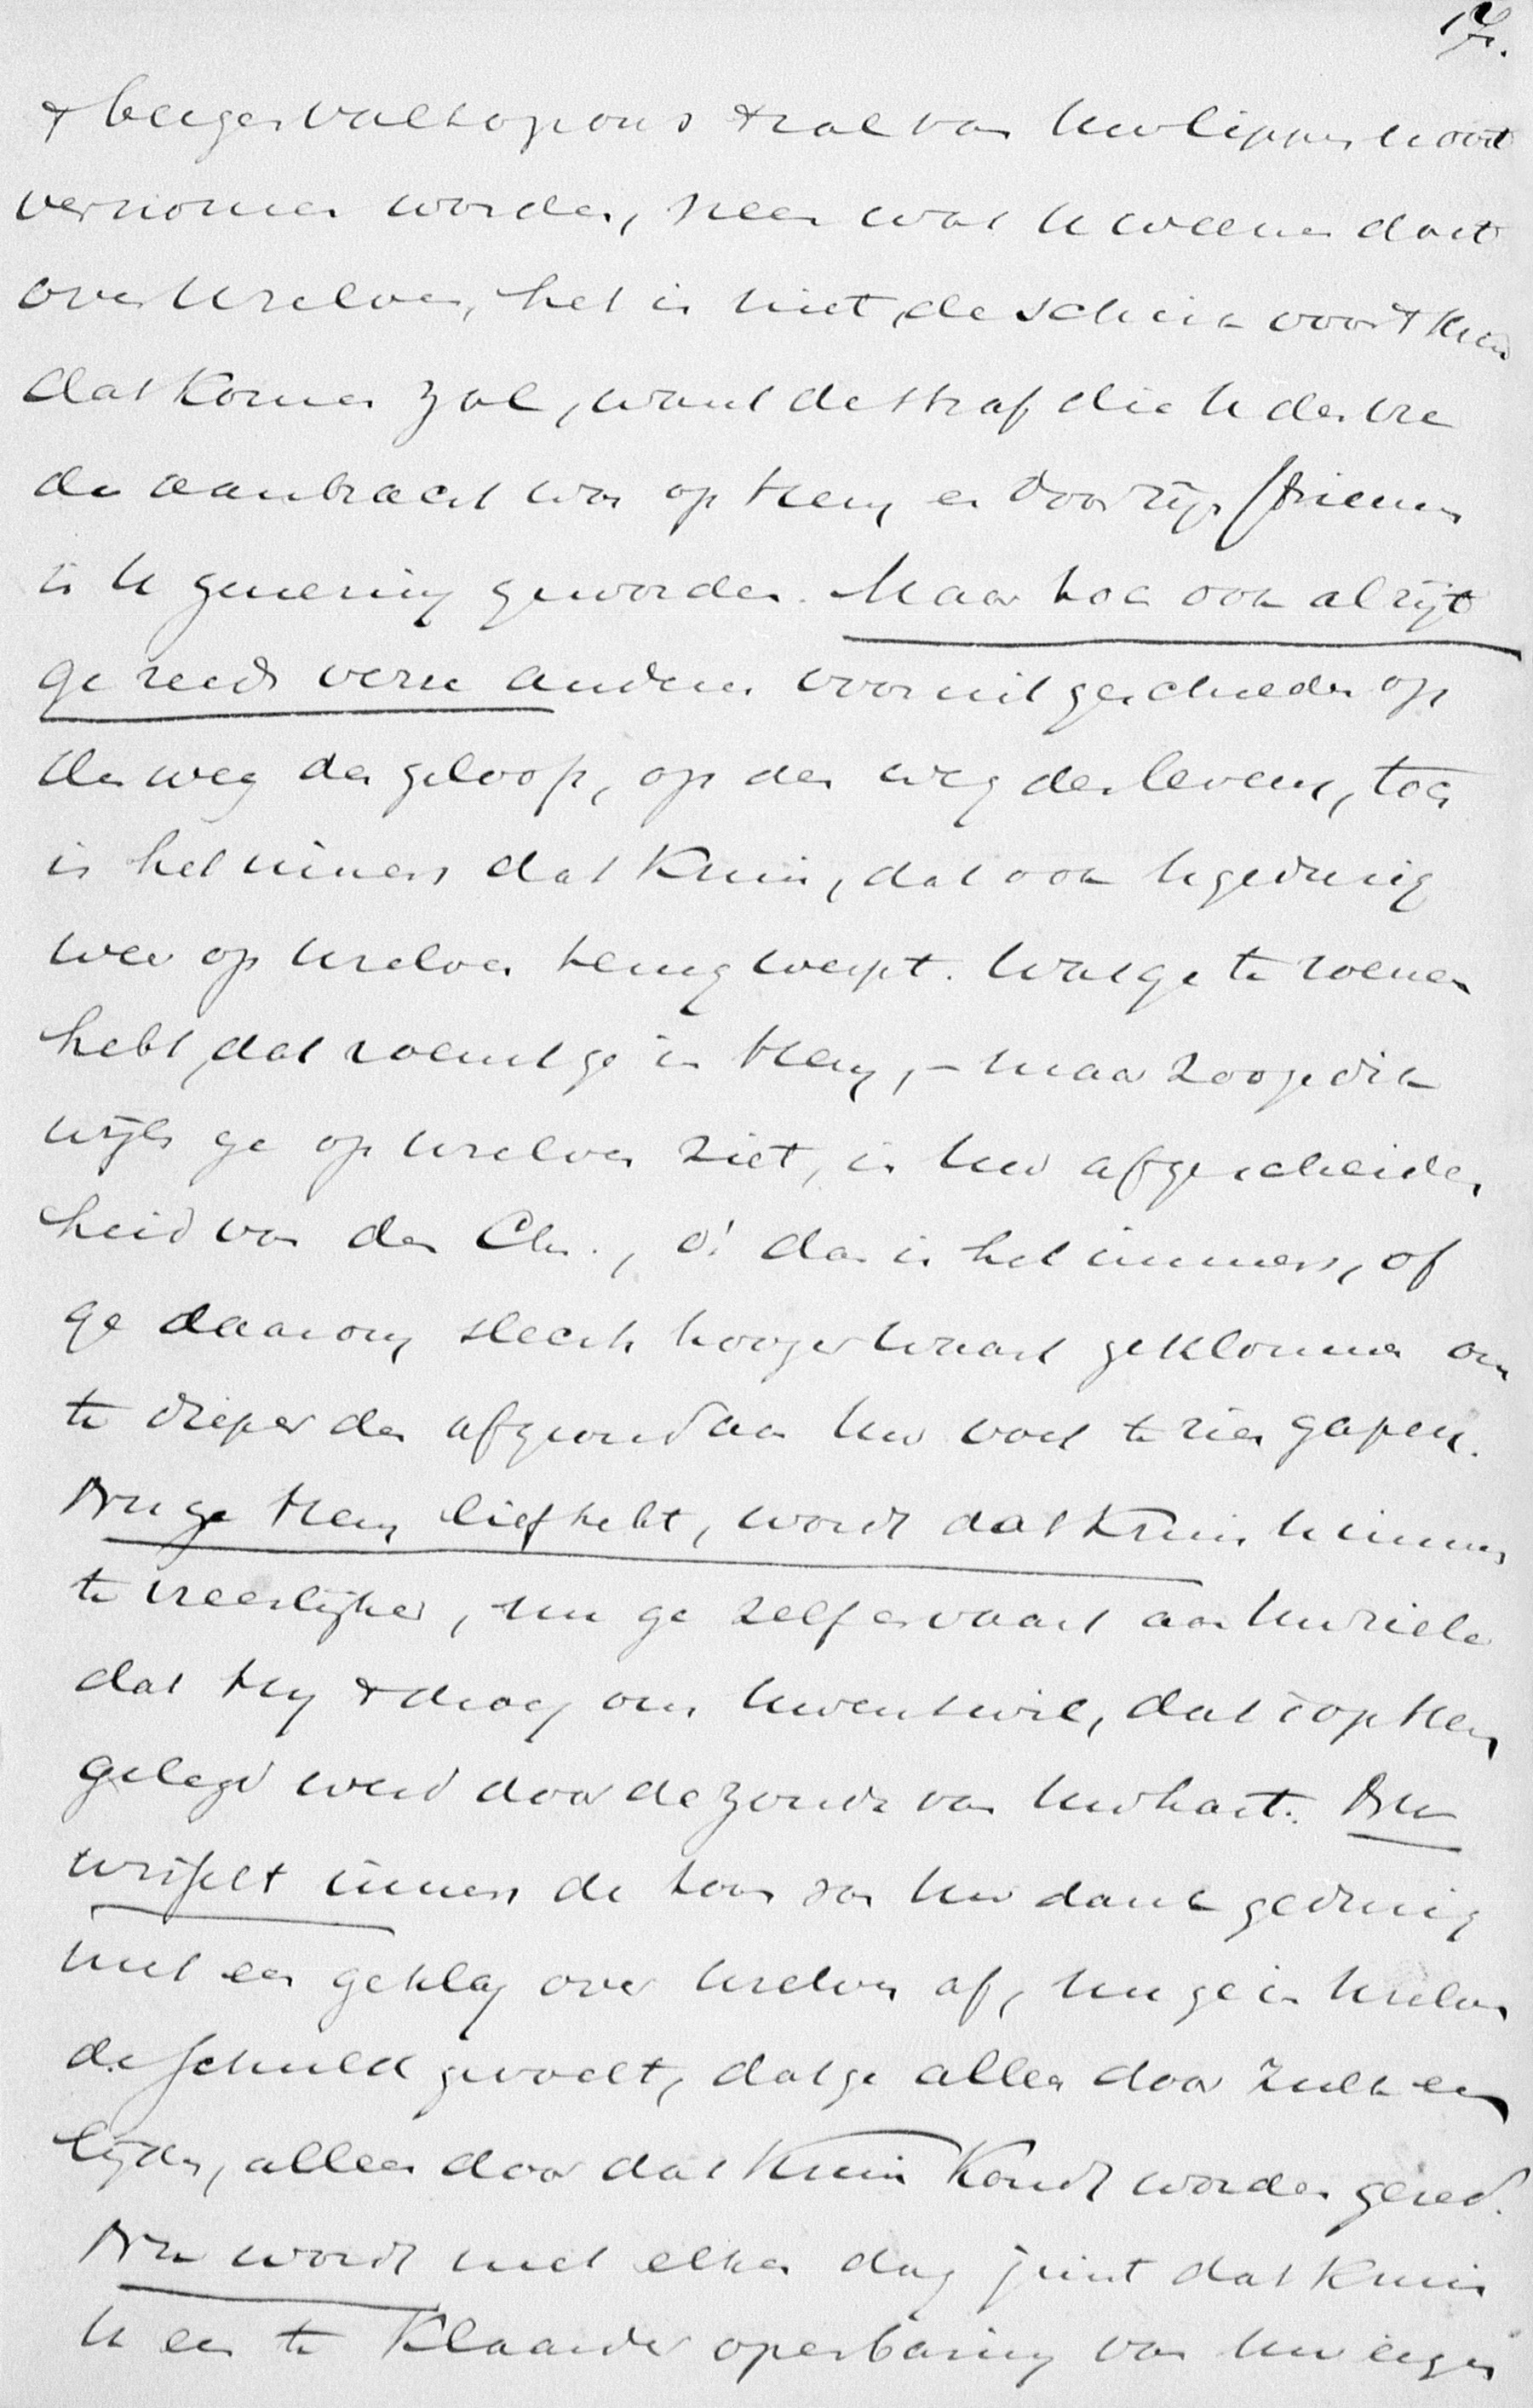 17.
't bergen valt op ons zal van Uw lippen nooit
vernomen worden, neen wat U weenen doet
over Uzelven, het is niet de schrik voor 't kruis
dat komen zal, want de straf die U den vre
de aanbracht was op Hem, en door zijn striemen
is U genezing geworden. Maar hoe ook al zijt
ge reeds verre anderen vooruitgeschreden op
den weg des geloofs, op den weg des levens, toch
is het immers dat kruis, dat ook U gedurig
weer op Uzelven terug werpt. Wat ge te roemen
hebt, dat roemt ge in Hem, – maar zoo gedik
wijls ge op Uzelven ziet, in Uw afgescheiden
heid van den Chr., o! dan is het immers, of
ge daarom slechts hooger waart geklommen om
te dieper den afgrond aan Uw voet te zien gapen.
Nu ge Hem liefhebt, wordt dat kruis U immers
te vreeslijker, nu ge zelf ervaart aan Uw ziele
dat Hij 't droeg om Uwentwil, dat 't op Hem
gelegd werd door de zonde van Uw hart. Nu
wisselt immers de toon van Uw dank gedurig
met een geklag over Uzelven af, nu ge in Uzelven
de schuld gevoelt, dat ge alleen door zulk een
lijden, alleen door dat kruis kondt worden gered.
Nu wordt met elken dag juist dat kruis
U een te klaarder openbaring van Uw eigen